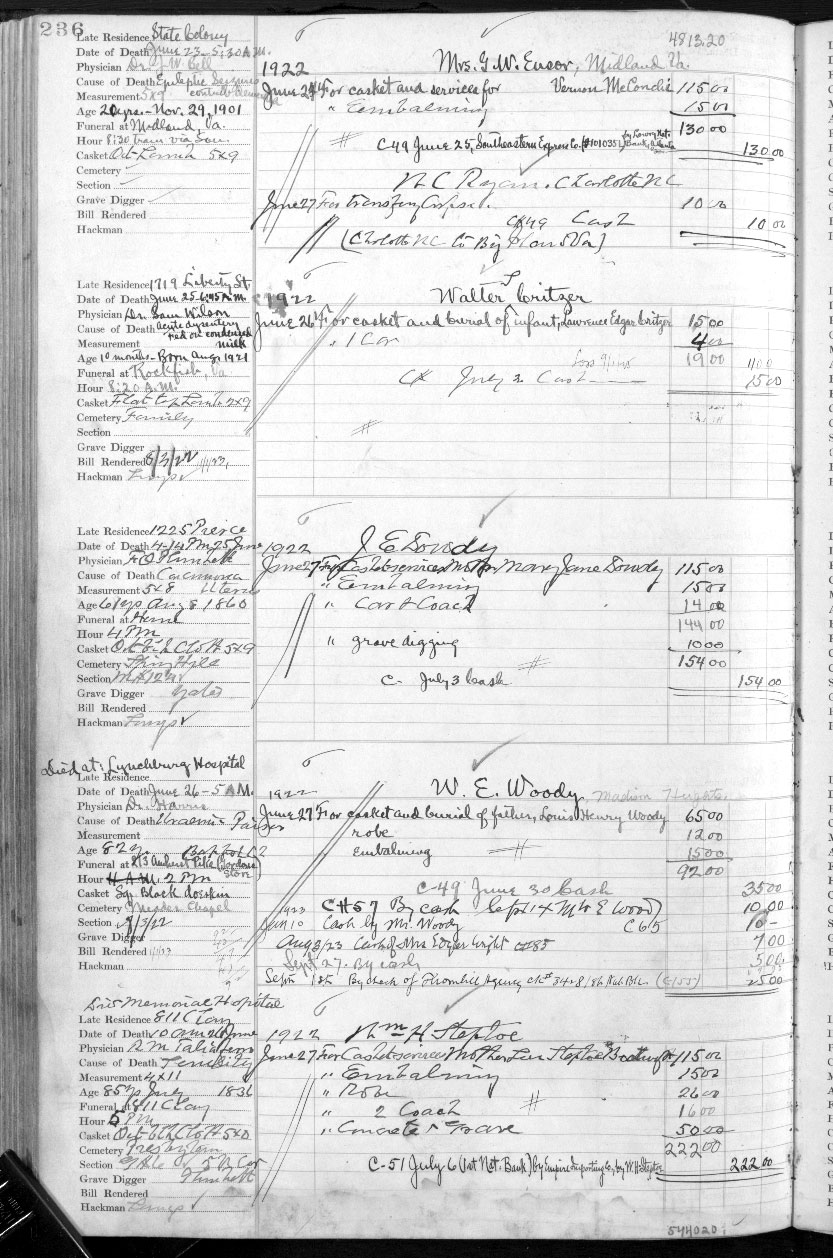 236
4813.20
Late Residence State Colony
Date of Death June 23 - 5:30 A.M.
Physician Dr. J. W. Bell
Cause of Death Epileptic Seizures
Measurement 5x9
Age 20 yrs. - Nov. 29, 1901
Funeral at Midland, Va.
Hour 8:30 train via Sou.
Casket Oct. Lamb 5x9
Cemetery
Section
Grave Digger
Bill Rendered
Hackman
1922 Mrs. G. W. Ensor, Midland Va.
June 24th For casket and services for Vernon McCondie 115 00
" Embalming 15 00
130 00
C49 June 25, Southeastern Express Co. (#101035) 130 00
R C Ryan. Charlotte NC
June 27 For transfering Corpse. 10 00
C49 Cash 10 00
(Charlotte NC to Big Island Va)
Late Residence 1719 Liberty St.
Date of Death June 25 6:45 A.M.
Physician Dr. Sam Wilson
Cause of Death Acute dysentery
Fed on condensed
Measurement milk
Age 10 months - Born Aug. 1921
Funeral at Rockfish, Va
Hour 8:20 A.M.
Casket Flat top Lamb. 2x9
Cemetery Family
Section
Grave Digger
Bill Rendered 8/3/22 1/1/23,
Hackman
1922 Walter L Critzer
June 26th For casket and burial of infant, Lawrence Edgar Critzer 15 00
" 1 Car 4 00
19 00
Loss 4 00
July 3 Cash 15 00
Late Residence 1225 Peirce
Date of Death 4-14 PM 25 June
Physician F. O. Plunkett
Cause of Death Carcinoma
Measurement 5x8 uterus
Age 61 yrs Aug 8 1860
Funeral at Home
Hour 4 PM
Casket Oct 5x9
Cemetery Spring Hill
Section
Grave Digger Yates
Bill Rendered
Hackman
1922 J E Dowdy
June 27 For Casket services Mother Mary Jane Dowdy 115 00
" Embalming 15 00
" Car & Coach 14 00
144 00
" grave digging 10 00
154 00
C- July 3 Cash 154 00
Died at: Lynchburg Hospital
Late Residence
Date of Death June 26 - 5 A.M.
Physician Dr. Harris
Cause of Death Uraemic Poison
Measurement
Age 82 y.
Funeral at 213 Amherst Pike
Hour 2 PM
Casket Sq. Black doeskin
Cemetery Chapel
Section 8/3/22
Grave Digger
Bill Rendered 1/1/23
Hackman
1922 W. E. Woody, Madison Heights.
June 27 For casket and burial of father, Louis Henry Woody 65 00
robe 12 00
embalming 15 00
92 00
C-49 June 30 Cash 35 00
1923 CH57 By cash Sept 14 Mr W E Wood) 10 00
Jan 10 Cash by Mr. Woody C65 10 -
Aug 3/23 Cash of Mrs Edgar Wright C85 7 00
Sept 27. By cash 5 00
Sept 1st By check of Thornhill Agency 25 00
Memorial Hospital
Late Residence 811 Clay
Date of Death 10 AM 26 June
Physician R M Taliaferro
Cause of Death Senility
Measurement 4x11
Age 85 yrs July 1836
Funeral at 811 Clay
Hour 5 PM
Casket Oct
Cemetery Presbyterian
Section
Grave Digger Plunkett
Bill Rendered
Hackman
1922 Wm H Steptoe
June 27 For Casket services Mother Steptoe 115 00
" Embalming 15 00
" Robe 26 00
" 2 Coach 16 00
" Concrete Grave 50 00
222 00
C-51 July 6 (1st Nat. Bank) by Empire Importing Co., by W. H. Steptoe 222 00
5440 20